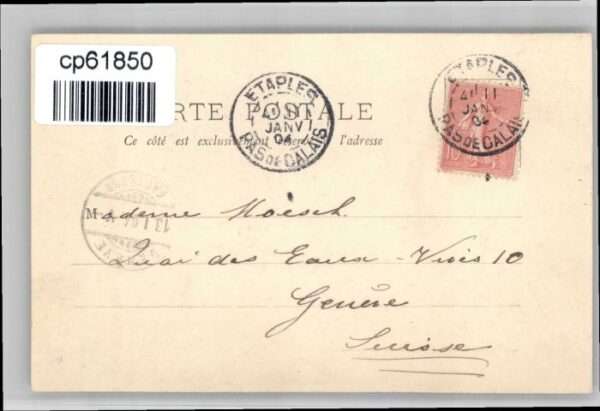 cp61850
CARTE POSTALE
Ce côté est exclusivement réservé à l'adresse
ETAPLES
JANV
04
PAS DE CALAIS
ETAPLES
11
JANV
04
PAS DE CALAIS
10
13.I.04
Madame Moesch.
Quai des Eaux-Vives 10
Genève
Suisse